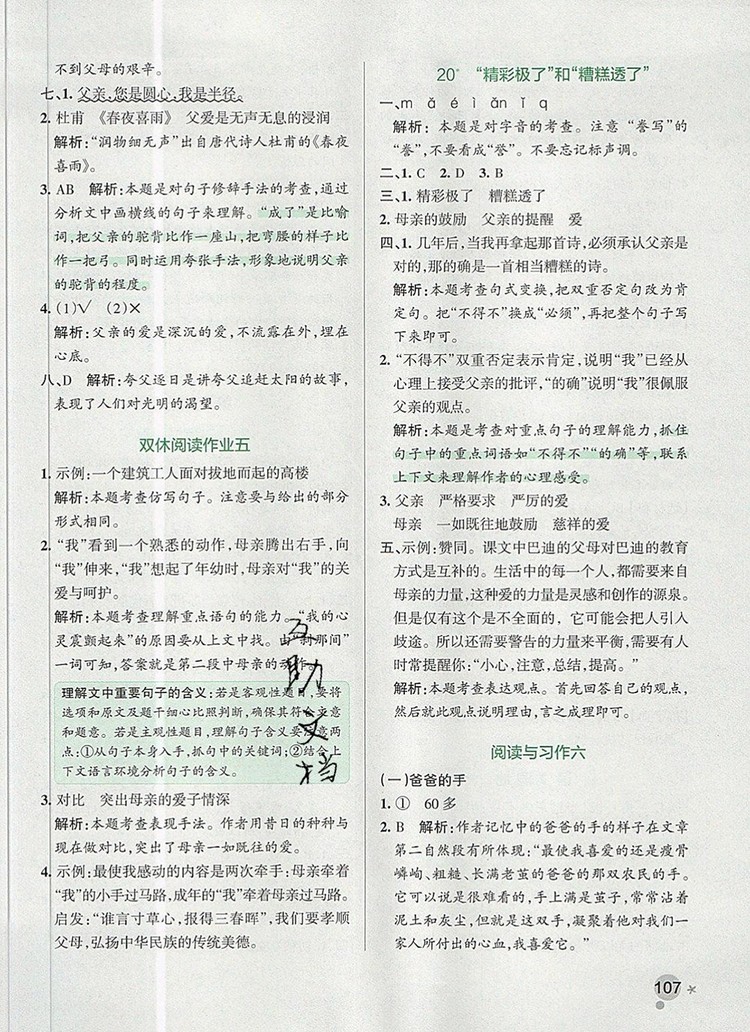 不到父母的艰辛。
七、1. 父亲,您是圆心,我是半径。
2. 杜甫 《春夜喜雨》 父爱是无声无息的浸润
解析:“润物细无声”出自唐代诗人杜甫的《春夜
喜雨》。
3. AB 解析:本题是对句子修辞手法的考查,通过
分析文中画横线的句子来理解。“成了”是比喻
词,把父亲的驼背比作一座山,把弯腰的样子比
作一把弓。同时运用夸张手法,形象地说明父亲
的驼背的程度。
4. (1)√ (2)×
解析:父亲的爱是深沉的爱,不流露在外,埋在
心底。
八、D 解析:夸父逐日是讲夸父追赶太阳的故事,
表现了人们对光明的渴望。
双休阅读作业五
1. 示例:一个建筑工人面对拔地而起的高楼
解析:本题考查仿写句子。注意要与给出的部分
形式相同。
2. “我”看到一个熟悉的动作,母亲腾出右手,向
“我”伸来,“我”想起了年幼时,母亲对“我”的关
爱与呵护。
解析:本题考查理解重点语句的能力。“我的心
灵震颤起来”的原因要从上文中找。由“刹那间”
一词可知,答案就是第二段中母亲的动作。
理解文中重要句子的含义:若是客观性题目,要将
选项和原文及题干细心比照判断,确保其符合文意
和题意。若是主观性题目,理解句子含义要注意两
点:①从句子本身入手,抓句中的关键词;②结合上
下文语言环境分析句子的含义。
3. 对比 突出母亲的爱子情深
解析:本题考查表现手法。作者用昔日的种种与
现在做对比,突出了母亲一如既往的爱。
4. 示例:最使我感动的内容是两次牵手:母亲牵着
“我”的小手过马路,成年的“我”牵着母亲过马路。
启发:“谁言寸草心,报得三春晖”,我们要孝顺
父母,弘扬中华民族的传统美德。
互助文档
20* “精彩极了”和“糟糕透了”
一、m ǎ é ì ǎn ǐ q
解析:本题是对字音的考查。注意“誊写”的
“誊”,不要看成“誉”。不要忘记标声调。
二、1. C 2. D 3. B
三、1. 精彩极了 糟糕透了
2. 母亲的鼓励 父亲的提醒 爱
四、1. 几年后,当我再拿起那首诗,必须承认父亲是
对的,那的确是一首相当糟糕的诗。
解析:本题考查句式变换,把双重否定句改为肯
定句。把“不得不”换成“必须”,再把整个句子写
下来即可。
2. “不得不”双重否定表示肯定,说明“我”已经从
心理上接受父亲的批评,“的确”说明“我”很佩服
父亲的观点。
解析:本题是考查对重点句子的理解能力,抓住
句子中的重点词语如“不得不”“的确”等,联系
上下文来理解作者的心理感受。
3. 父亲 严格要求 严厉的爱
母亲 一如既往地鼓励 慈祥的爱
五、示例:赞同。课文中巴迪的父母对巴迪的教育
方式是互补的。生活中的每一个人,都需要来自
母亲的力量,这种爱的力量是灵感和创作的源泉。
但是仅有这个是不全面的,它可能会把人引入
歧途。所以还需要警告的力量来平衡,需要有人
时常提醒你:“小心,注意,总结,提高。”
解析:本题考查表达观点。首先回答自己的观点,
然后就此观点说明理由,言之成理即可。
阅读与习作六
(一)爸爸的手
1. ① 60多
2. B 解析:作者记忆中的爸爸的手的样子在文章
第二自然段有所体现:“最使我喜爱的还是瘦骨
嶙峋、粗糙、长满老茧的爸爸的那双农民的手。
它可以说是很难看的,手上满是茧子,常常沾着
泥土和灰尘,但就是这双手,凝聚着他对我们一
家人所付出的心血,我喜爱它。”
107